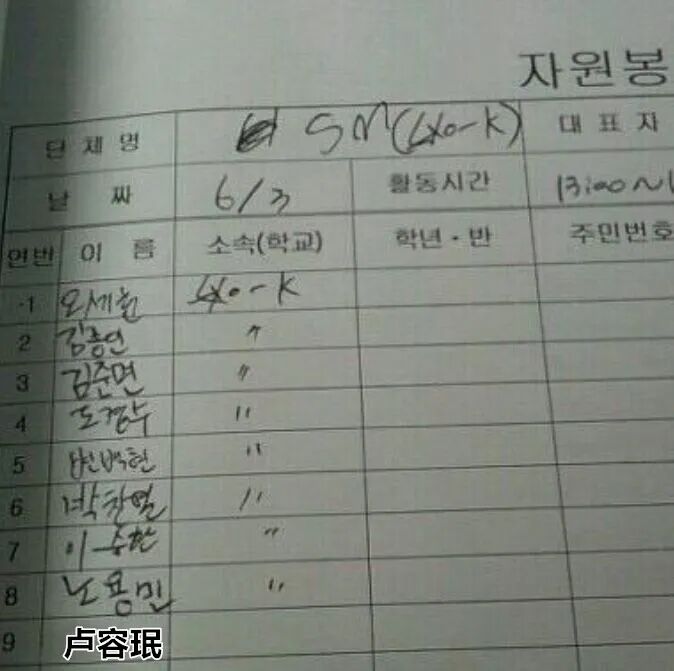 자원봉
단체명 SM(EXO-K) 대표자
날짜 6/3 활동시간 13:00~
연번 이름 소속(학교) 학년·반 주민번호
1 오세훈 EXO-K
2 김종인 〃
3 김준면 〃
4 도경수 〃
5 변백현 〃
6 박찬열 〃
7 이승환 〃
8 노용민 〃
9
卢容珉